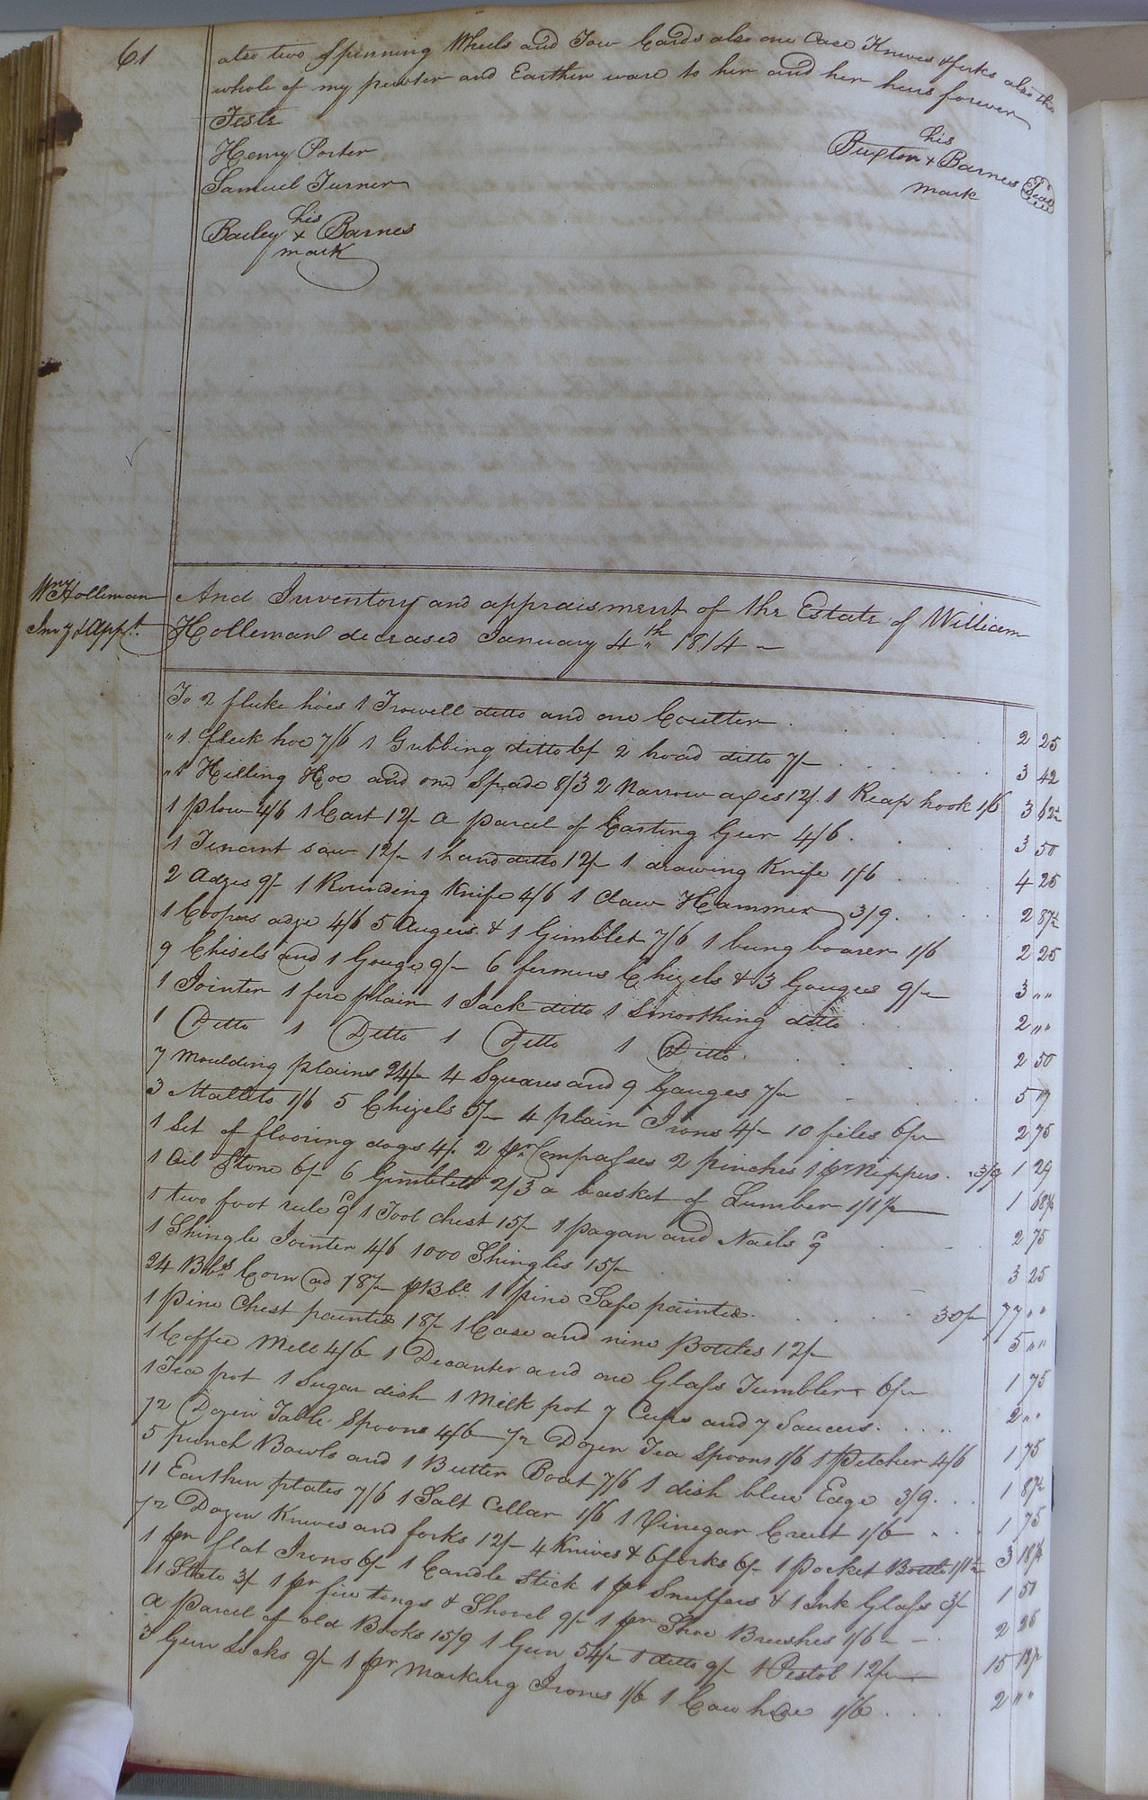 61
also two Spinning Wheels and Tow Cards also one Case Knives & forks also the
whole of my pewter and Earthen ware to her and her heirs forever
Teste
Henry Porter
Samuel Turner
his
Bailey x Barnes
mark
his
Buxton x Barnes Seal
mark
Wm Holleman
Inv.y & Appt.
And Inventory and appraisment of the Estate of William
Holleman deceased January 4th 1814
To 2 fluke hoes 1 Trowell ditto and one Coulter . 2 25
" 1 fluck hoe 7/6 1 Grubbing ditto 6/ 2 broad ditto 7/ 3 42
" 1 Hilling Hoe and one Spade 8/3 2 Narrow axes 12/. 1 Reap hook 1/6 3 62½
1 Plow 4/6 1 Cart 12/ a parcel of Carting Geer 4/6 . 3 50
1 Tenent saw 12/ 1 hand ditto 12/ 1 drawing Knife 1/6 4 25
2 Adzes 9/ 1 Rounding Knife 4/6 1 Claw Hammer 3/9 . 2 87½
1 Coopers adze 4/6 5 Augers & 1 Gimblet 7/6 1 bung boarer 1/6 2 25
9 Chisels and 1 Gouge 9/ 6 formers Chizels & 3 Gouges 9/ 3 " "
1 Jointer 1 fore plain 1 Jack ditto 1 Smoothing ditto 2 " "
1 Ditto 1 Ditto 1 Ditto 1 Ditto . 2 50
7 Moulding plains 24/ 4 Squares and 9 Gauges 7/ 5 19
3 Mallets 1/6 5 Chizels 5/ 4 plain Irons 4/ 10 files 6/ 2 75
1 Set of flooring dogs 4/. 2 pr Compasses 2 pinches 1 pr Nippers . 3/9 1 29
1 Oil Stone 6/ 6 Gimblets 2/3 a basket of Lumber 1/1½ 1 68¾
1 two foot rule 9d 1 Tool chest 15/ 1 pagan and Nails 9d 2 75
1 Shingle Jointer 4/6 1000 Shingles 15/ 3 25
24 Bbls Corn @ 18/ p Bbl. 1 pine Safe painted . 30/ 77 " "
1 pine Chest painted 18/ 1 Case and nine Bottles 12/ 5 " "
1 Coffee Mill 4/6 1 Decanter and one Glass Tumbler 6/ 1 75
1 Tea pot 1 Sugar dish 1 Milk pot 7 Cups and 7 Saucers . 2 " "
½ Dozen Table Spoons 4/6 ½ Dozen Tea Spoons 1/6 1 Pitcher 4/6 1 75
5 punch Bowls and 1 Butter Boat 7/6 1 dish blue Edge 3/9 . 1 87½
11 Earthen plates 7/6 1 Salt Cellar 1/6 1 Vinegar Cruet 1/6 1 75
½ Dozen Knives and forks 12/ 4 Knives & 6 forks 6/ 1 Pocket Bottle 1/1½ 3 18¾
1 pr flat Irons 6/ 1 Candle Stick 1 pr Snuffers & 1 Ink Glass 3/ 1 50
11 Slate 3/ 1 pr fire tongs & Shovel 9/ 1 pr Shoe Brushes 1/6 2 25
a parcel of old Books 15/9 1 Gun 54/ 1 ditto 9/ 1 Pistol 12/ 15 12½
3 Gun Locks 9/ 1 pr Marking Irons 1/6 1 Cow hide 1/6 . 2 " "